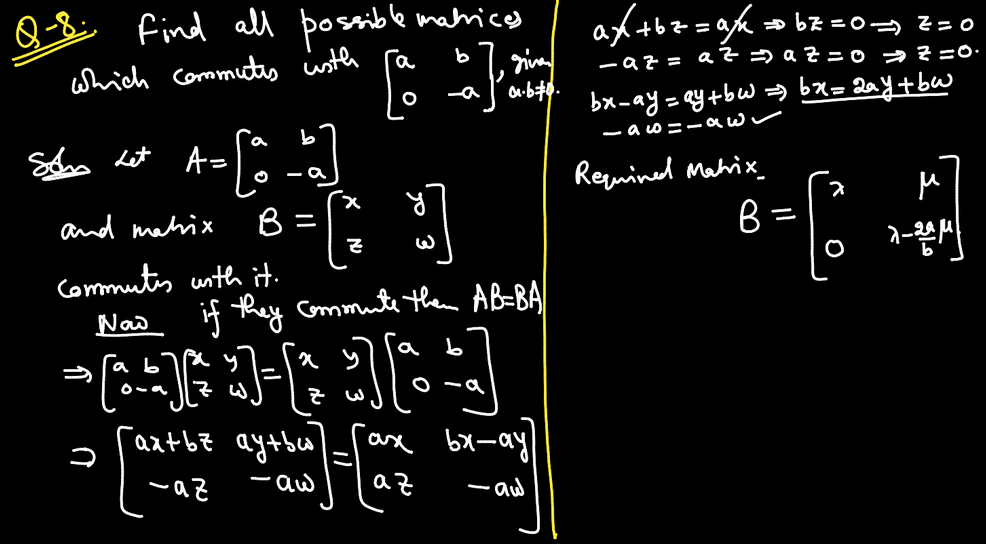 Q-8: Find all possible matrices
which commutes with [a b; 0 -a], given a.b≠0.
Soln Let A = [a b; 0 -a]
and matrix B = [x y; z w]
commutes with it.
Now if they commute then AB=BA
⇒ [a b; 0 -a] [x y; z w] = [x y; z w] [a b; 0 -a]
⇒ [ax+bz ay+bw; -az -aw] = [ax bx-ay; az -aw]
ax+bz = ax ⇒ bz=0 ⇒ z=0
-az = az ⇒ az=0 ⇒ z=0.
bx-ay = ay+bw ⇒ bx = 2ay+bw
-aw = -aw ✓
Required Matrix
B = [λ μ; 0 λ-2a/b μ]